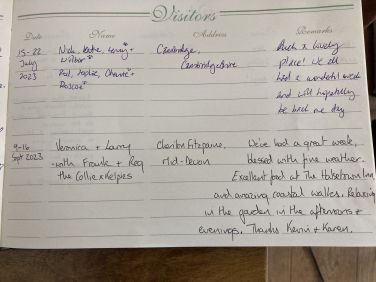 Visitors
Date Name Address Remarks
15 - 22 Nick, Katie, Cambridge, Such a lovely
July Wilbur + Cambridgeshire place! We all
2023 Paul, Sophie, + had a wonderful week
Roscoe and will hopefully
be back one day
9-16 Veronica + Larry Cheriton Fitzpaine, We've had a great week,
Sept 2023 with Frank + Reg Mid-Devon blessed with fine weather.
the Collie x Kelpies Excellent food at The Inn
and amazing coastal walks. Relaxing
in the garden in the afternoons +
evenings. Thanks Kevin + Karen.